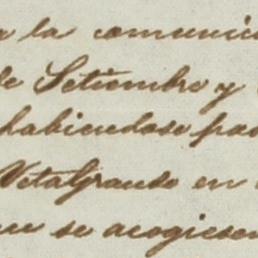 a la comunica
de Setiembre y
habiendose pas
Vetagrande en
que se acogiesen